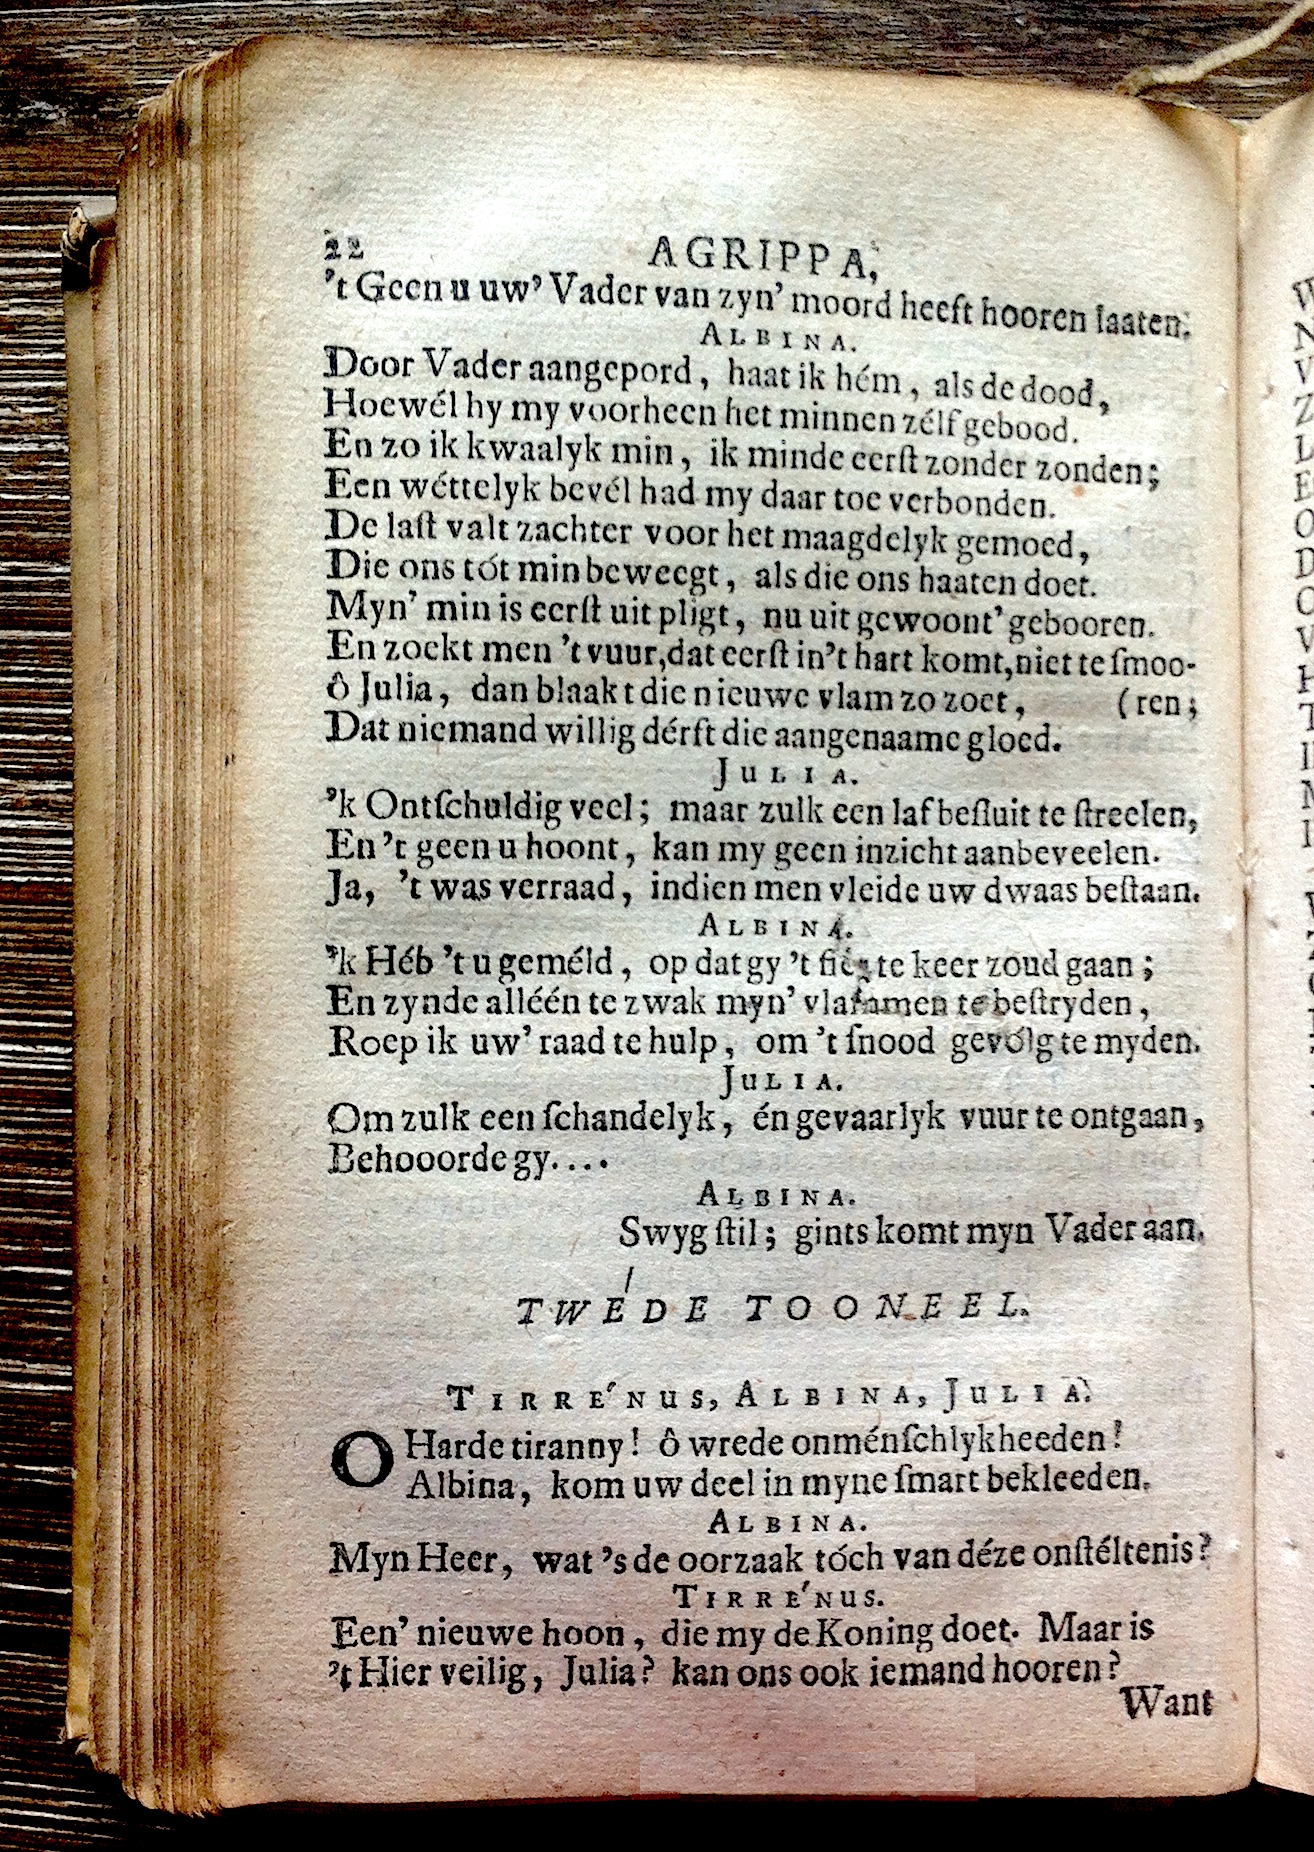 22 AGRIPPA,
’t Geen u uw’ Vader van zyn’ moord heeft hooren laaten.
ALBINA.
Door Vader aangepord, haat ik hém, als de dood,
Hoewél hy my voorheen het minnen zélf gebood.
En zo ik kwaalyk min, ik minde eerſt zonder zonden;
Een wéttelyk bevél had my daar toe verbonden.
De laſt valt zachter voor het maagdelyk gemoed,
Die ons tót min beweegt, als die ons haaten doet.
Myn’ min is eerſt uit pligt, nu uit gewoont’ gebooren.
En zoekt men ’t vuur, dat eerſt in’t hart komt, niet te ſmoo-
ô Julia, dan blaakt die nieuwe vlam zo zoet, (ren;
Dat niemand willig dérft die aangenaame gloed.
JULIA.
’k Ontſchuldig veel; maar zulk een laf beſluit te ſtreelen,
En ’t geen u hoont, kan my geen inzicht aanbeveelen.
Ja, ’t was verraad, indien men vleide uw dwaas beſtaan.
ALBINA.
’k Héb ’t u geméld, op dat gy ’t te keer zoud gaan;
En zynde alléén te zwak myn’ vlammen te beſtryden,
Roep ik uw’ raad te hulp, om ’t ſnood gevólg te myden.
JULIA.
Om zulk een ſchandelyk, én gevaarlyk vuur te ontgaan,
Behooorde gy....
ALBINA.
Swyg ſtil; gints komt myn Vader aan.
TWÉDE TOONEEL.
TIRRE´NUS, ALBINA, JULIA.
O Harde tiranny! ô wrede onménſchlykheeden!
Albina, kom uw deel in myne ſmart bekleeden.
ALBINA.
Myn Heer, wat ’s de oorzaak tóch van déze onſtéltenis?
TIRRE´NUS.
Een’ nieuwe hoon, die my de Koning doet. Maar is
’t Hier veilig, Julia? kan ons ook iemand hooren?
Want